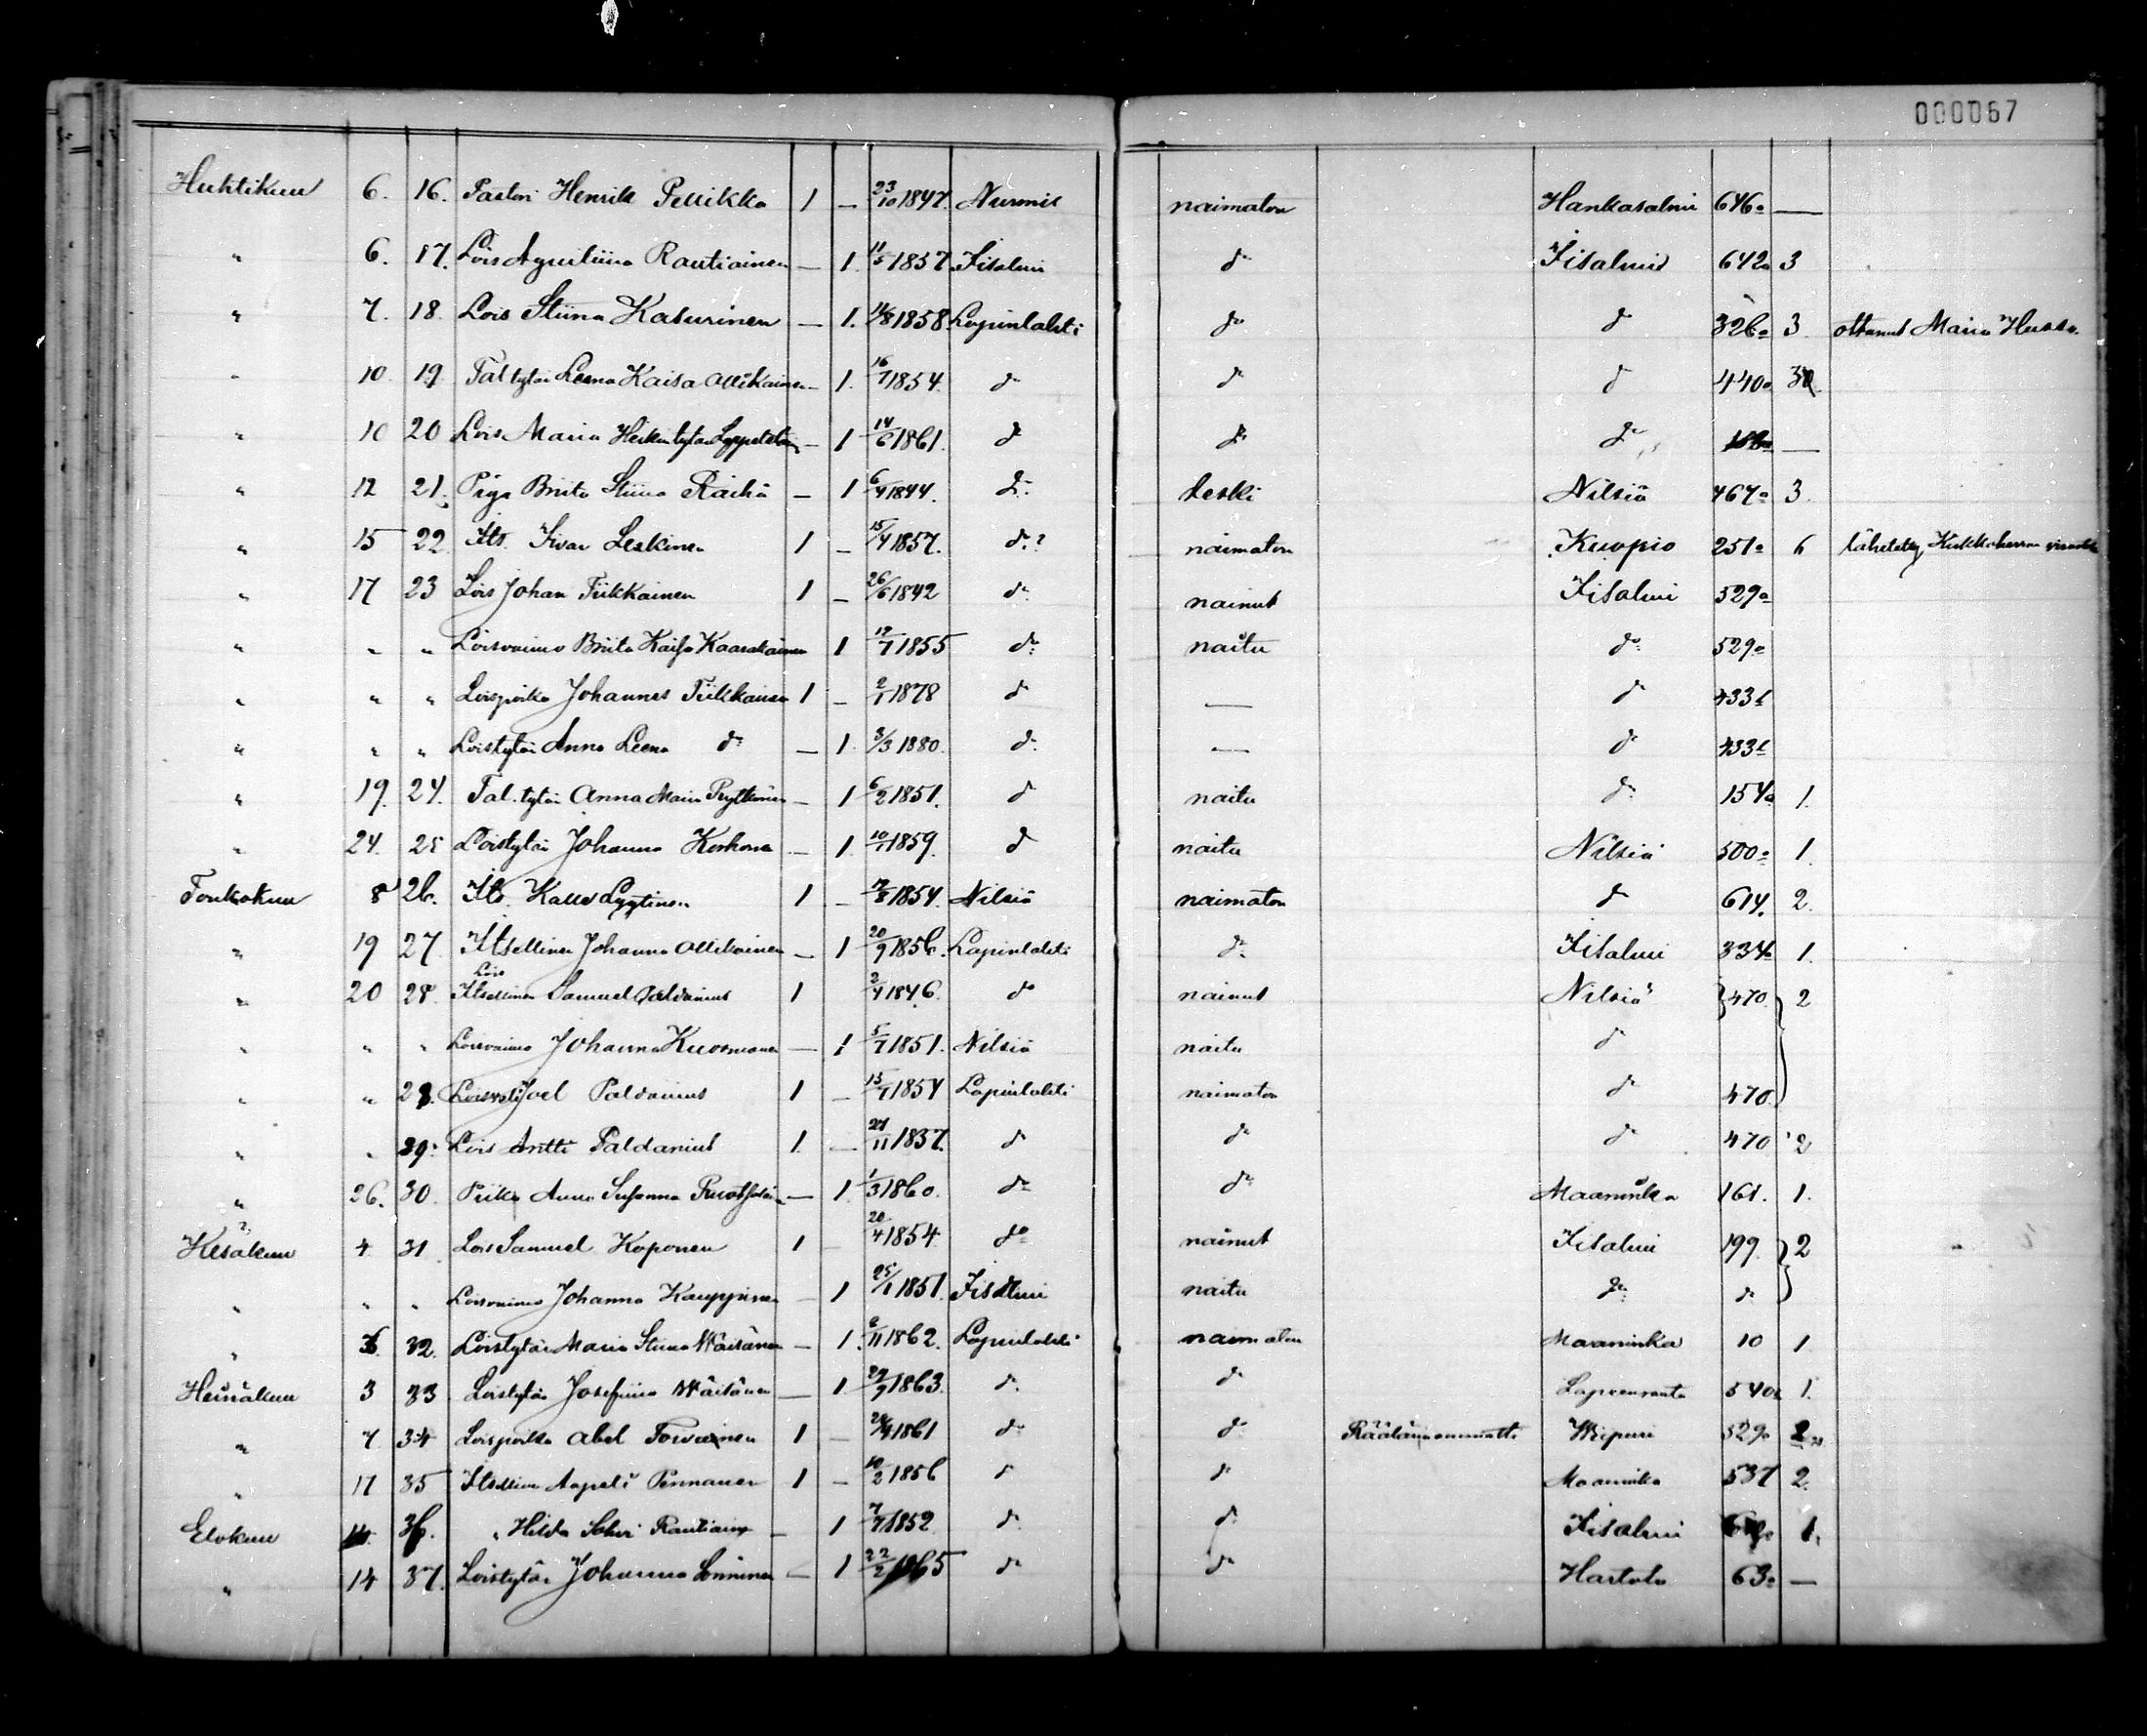 000067
Huhtikuu 6. 16. Pastori Henrik Pellikka 1 — 23/10 1847. Nurmes naimaton Hankasalmi 646a —
" 6. 17. Lois Aguliina Rautiainen — 1. 11/5 1857 Iisalmi do Iisalmi 642a 3
" 7. 18. Lois Stiina Kasurinen — 1. 11/8 1858 Lapinlahti do do 326a 3. ottanut Maria Husso.
" 10. 19. Tal tytär Leena Kaisa Ollikainen — 1. 16/7 1854. do do do 440a
" 10 20 Lois Maria Heikintytär — 1 14/6 1861. do do do —
" 12 21. Piga Briita Stiina Räihä — 1 6/4 1844. do leski Nilsiä 467a 3.
" 15 22. Its. Iivar Leskinen 1 — 15/4 1857. do? naimaton Kuopio 251a 6 lähetetty Kirkkoherran
" 17 23 Lois Johan Tiikkainen 1 — 26/6 1842 do nainut Iisalmi 529a
" " " Loisvaimo Briita Kaisa Kaarakainen 1 12/7 1855 do naitu do 529a
" " " Loispoika Johannes Tiikkainen 1 — 2/1 1878 do — do 433
" " " Loistytär Anna Leena do — 1. 3/3 1880. do — do 433
" 19. 24. Tal. tytär Anna Maria Rytkönen — 1 6/2 1851. do naitu do 154a 1.
" 24. 25 Loistytär Johanna Korhonen — 1. 10/1 1859. do naitu Nilsiä 500a 1.
Toukokuu 8 26. Its. Kalle Lyytinen 1 — 7/8 1854. Nilsiä naimaton do 614. 2.
" 19 27. Itsellinen Johanna Ollikainen — 1 20/9 1856. Lapinlahti do Iisalmi 334a 1.
Lois
" 20 28. Itsellinen Samuel Paldanius 1 2/4 1846. do nainut Nilsiä 470. 2
" " " Loisvaimo Johanna Kuosmanen — 1 5/7 1851. Nilsiä naitu do
" " 28. Loisveli Joel Paldanius 1 — 15/7 1854 Lapinlahti naimaton do 470.
" " 29. Lois Antti Paldanius 1. — 27/11 1837. do do do 470 2
" 26. 30. Piika Anna Susanna Ruotsalainen — 1. 1/3 1860. do do Maaninka 161. 1.
Kesäkuu 4 31. Lois Samuel Koponen 1 — 20/4 1854 do nainut Iisalmi 199. 2
" " " Loisvaimo Johanna Kauppinen — 1 25/1 1851. Iisalmi naitu do do
" 32. Loistytär Maria Stiina Wäisänen — 1. 2/11 1862. Lapinlahti naimaton Maaninka 10 1
Heinäkuu 3 33 Loistytär Josefiina Wäisänen — 1 29/9 1863. do do Lapeenranta 540a 1.
" 7. 34 Loispoika Abel Toivainen 1 — 24/4 1861 do do Räätälin ammatti Wiipuri 529a 2
" 17 35 Itsellinen Aapeli Pennanen 1 — 10/2 1856 do do Maaninka 537 2.
Elokuu 36. " Hilda Sohvi Rautiainen — 1 7/7 1852. do do Iisalmi 1.
" 14 37. Loistytär Johanna Lonninen — 1 22/2 1865 do do Hartola 63a —